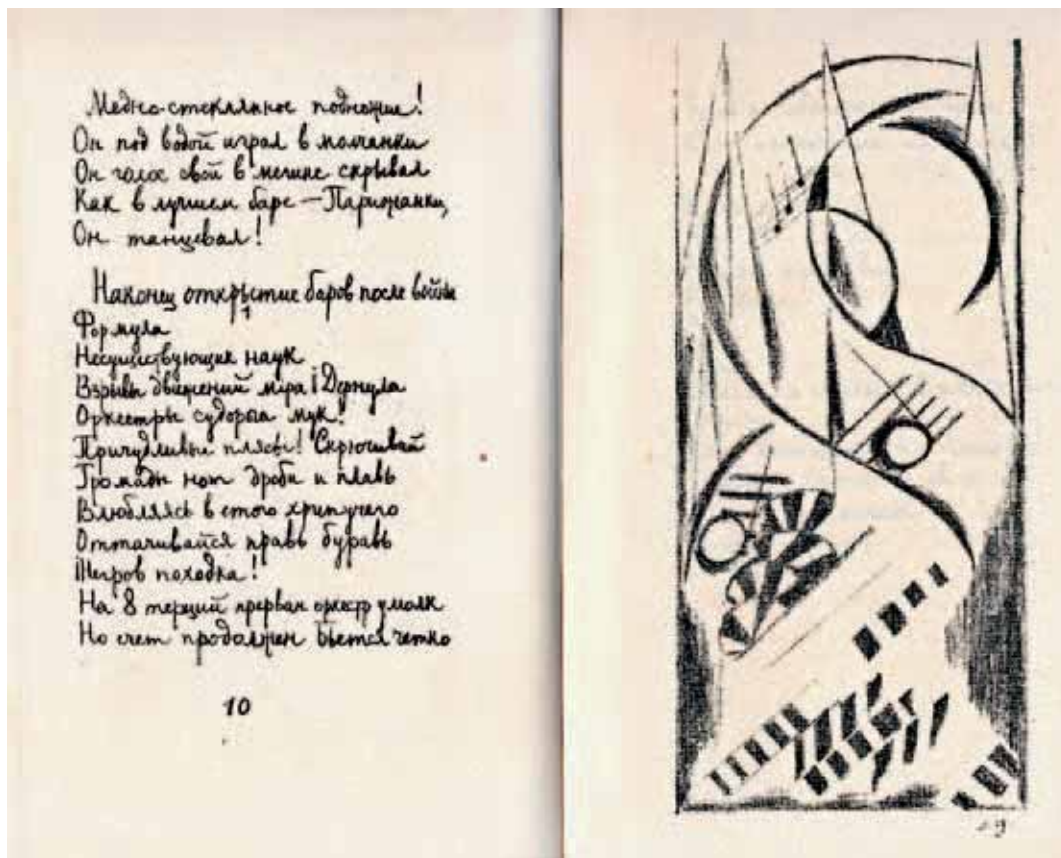 Медно-стеклянное подножие!
Он под водой играл в молчанки
Он голос свой в мечике скрывал
Как в лучшем баре — Парижанки,
Он танцевал!
Наконец открытие баров после войны
Формула
Несуществующих наук
Взрывы движений міра і Дернула
Оркестры судорга мук!
Причудливые плясы! Скрючивай
Громады нот дроби и плавь
Влюбляясь в етого хрипучего
Оттачивайся правь буравь
Тигров походка!
На 8 терций прерван оркестр умолк
Но счет продолжен бьется четко
10